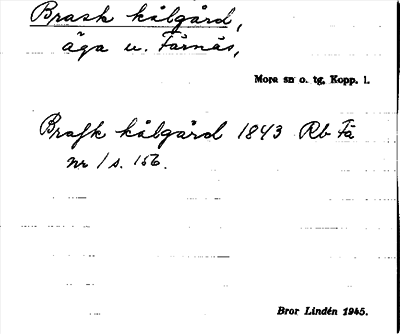 Brask kålgård,
äga u. Färnäs,
More sn o. tg, Kopp. l.
Brasfk kålgård 1843 Rb Fä
nr 1 s. 156.
Bror Lindén 1945.